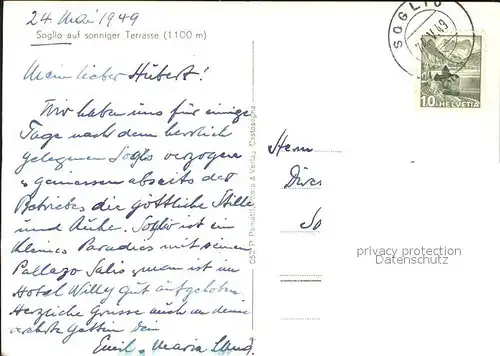 24. Mai 1949
Soglio auf sonniger Terrasse (1100 m)
Mein lieber Hubert!
Wir haben uns für einige
Tage nach dem herrlich
gelegenen Soglio verzogen
& geniessen abseits des
Betriebes die göttliche Stille
und Ruhe. Soglio ist ein
kleines Paradies mit seinem
Palazzo Salis, man ist im
Hotel Willy gut aufgehoben.
Herzliche Grüsse auch an deine
Gattin Dein
Emil & Maria
SOGLIO
V.49
10 HELVETIA
Herrn
privacy protection
Datenschutz